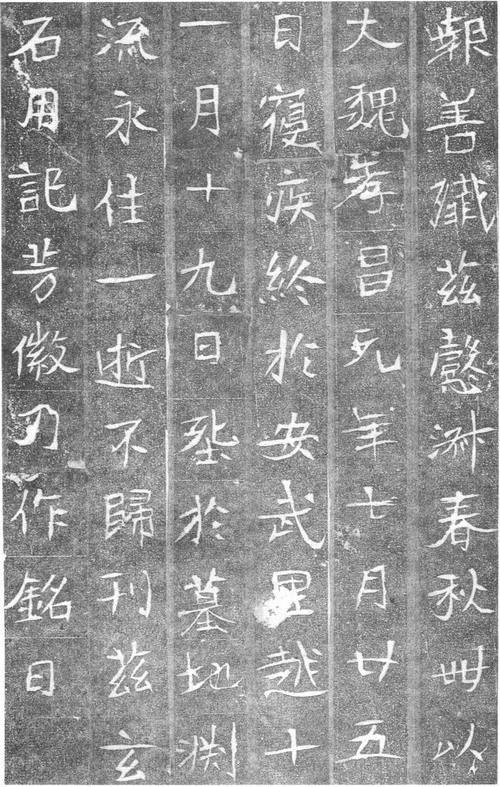 報善殲茲懿淑春秋卌以
大魏孝昌元年七月廿五
日寑疾終扵安武里越十
一月十九日扵墓地渕
流永住一逝不歸刊茲玄
石用記芳徽乃作銘曰